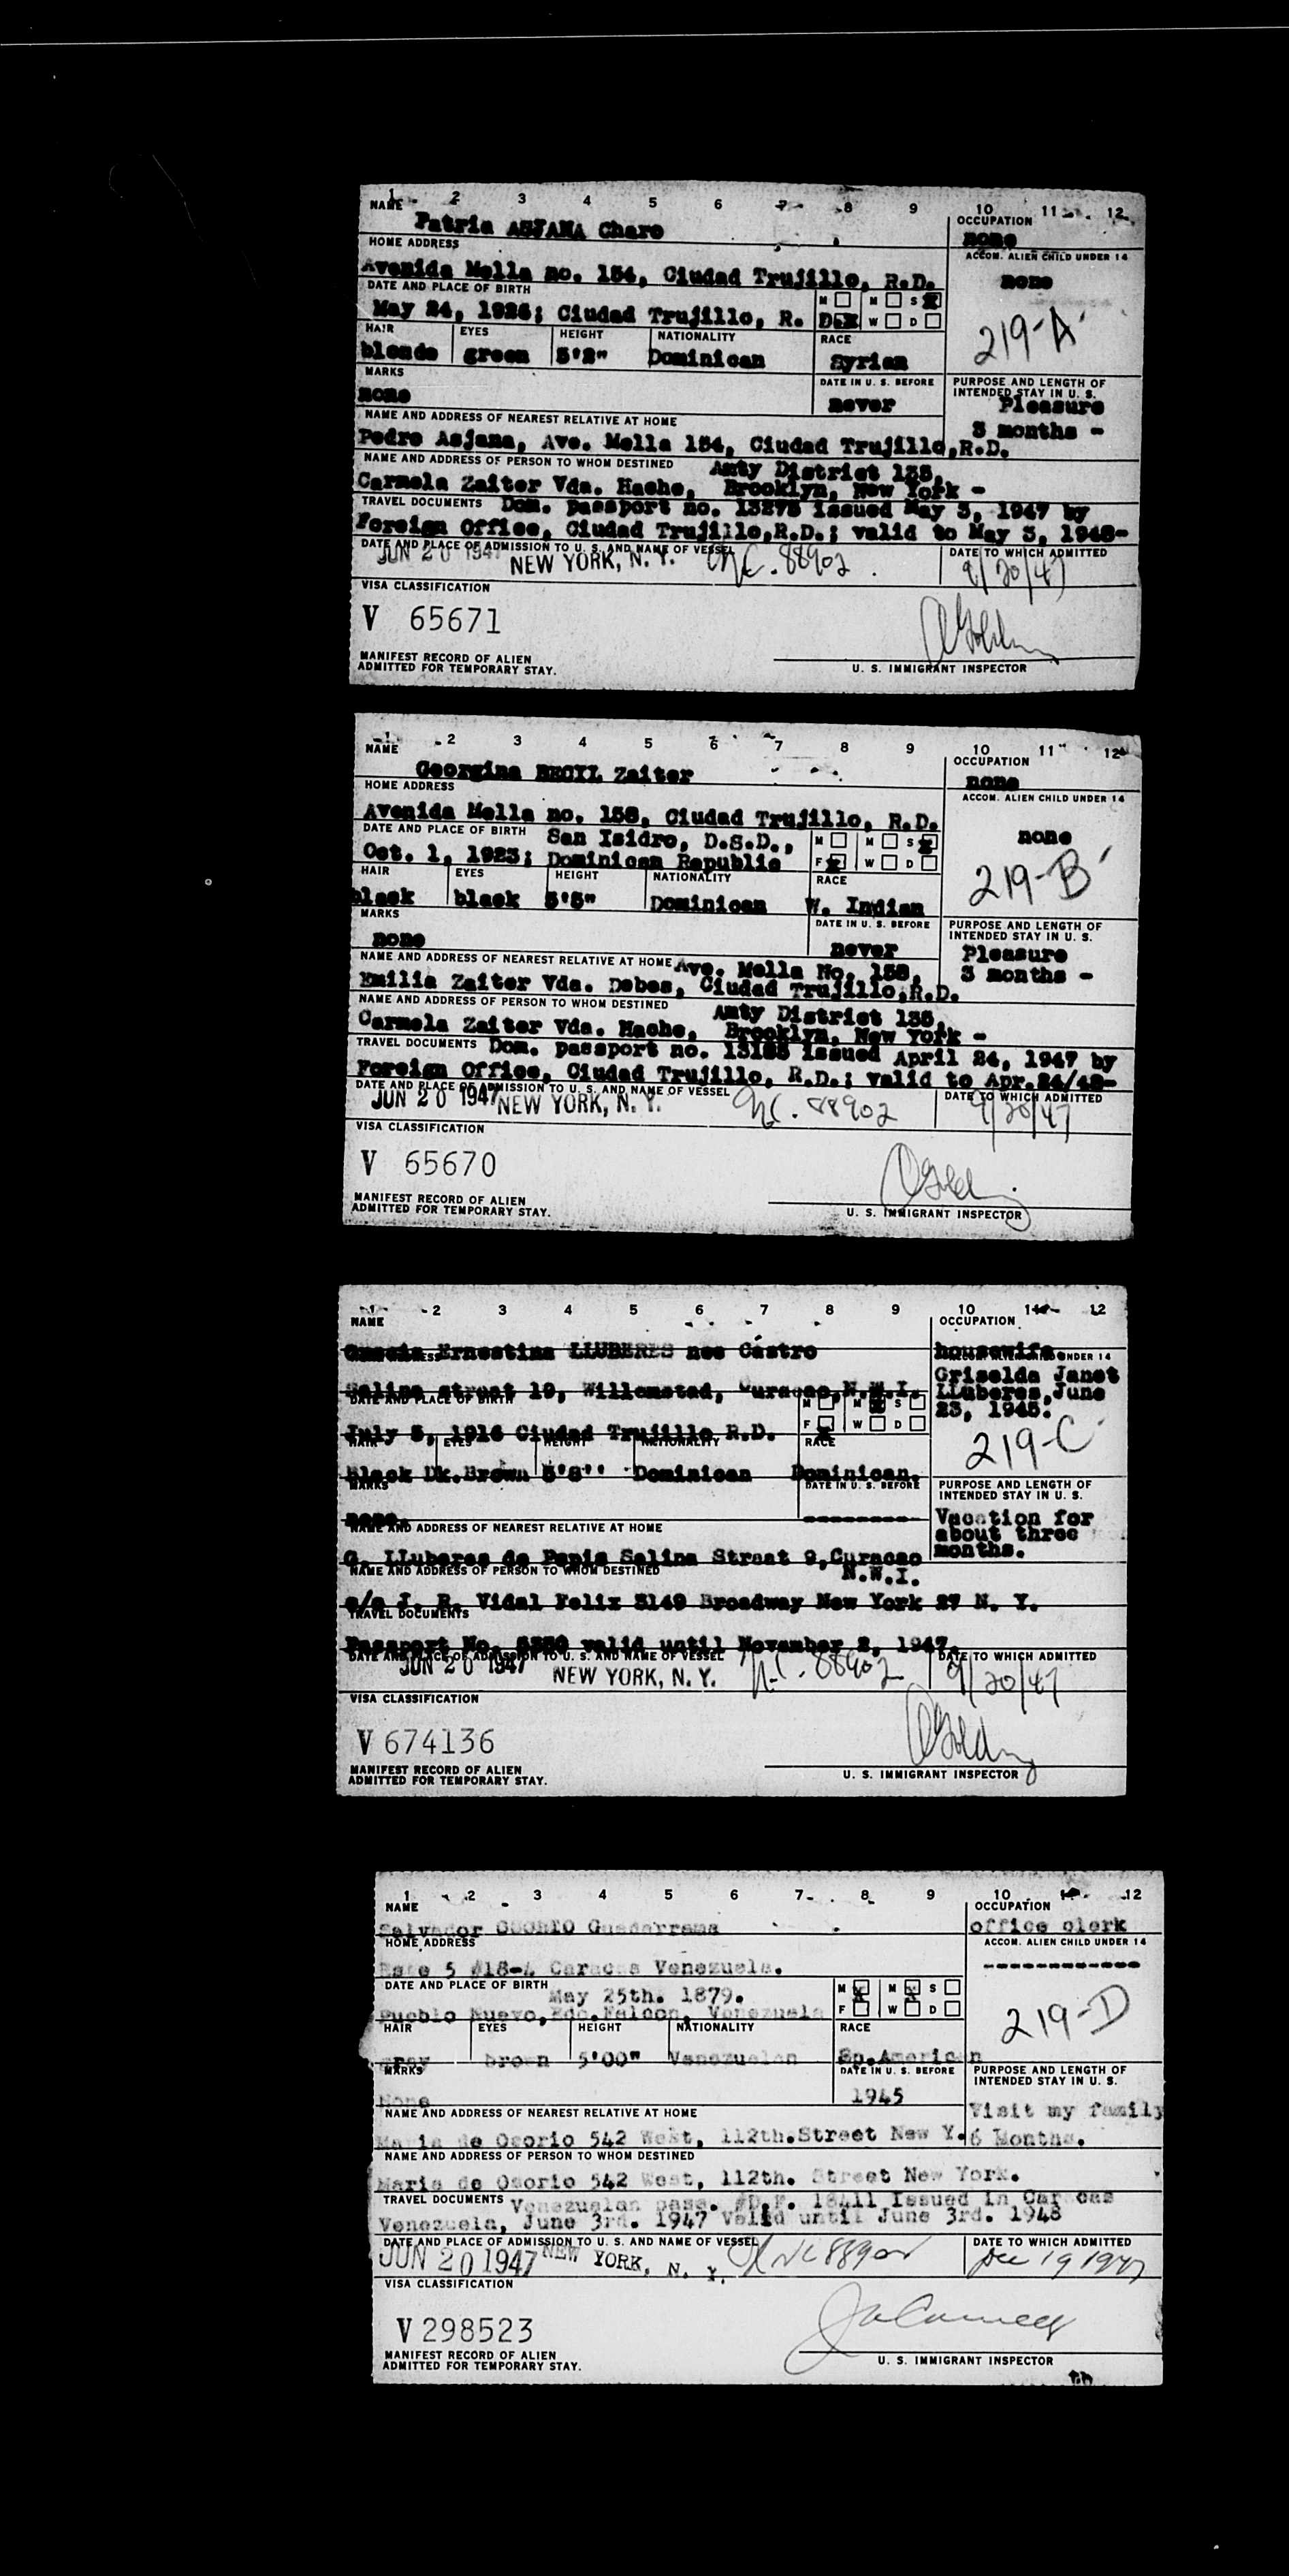 1 2 3 4 5 6 7 8 9 10 11 12
NAME OCCUPATION
Patria ASJANA Chare none
HOME ADDRESS ACCOM. ALIEN CHILD UNDER 14
Avenida Mella no. 154, Ciudad Trujillo, R.D. none
DATE AND PLACE OF BIRTH M M S
May 24, 1926; Ciudad Trujillo, R. D. W D
219-A
HAIR EYES HEIGHT NATIONALITY RACE
blonde green 5'2" Dominican Syrian
MARKS DATE IN U. S. BEFORE PURPOSE AND LENGTH OF
INTENDED STAY IN U. S.
none never Pleasure
NAME AND ADDRESS OF NEAREST RELATIVE AT HOME 3 months -
Pedro Asjana, Ave. Mella 154, Ciudad Trujillo,R.D.
NAME AND ADDRESS OF PERSON TO WHOM DESTINED Amty District 135,
Carmela Zaiter Vda. Hache, Brooklyn, New York -
TRAVEL DOCUMENTS Dom. passport no. 13275 issued May 3, 1947 by
Foreign Office, Ciudad Trujillo,R.D.; valid to May 3, 1948-
DATE AND PLACE OF ADMISSION TO U. S. AND NAME OF VESSEL DATE TO WHICH ADMITTED
JUN 20 1947 NEW YORK, N. Y. NC. 88902 9/20/47
VISA CLASSIFICATION
V 65671
MANIFEST RECORD OF ALIEN
ADMITTED FOR TEMPORARY STAY. U. S. IMMIGRANT INSPECTOR
1 2 3 4 5 6 7 8 9 10 11 12
NAME OCCUPATION
Georgina BECIL Zaiter none
HOME ADDRESS ACCOM. ALIEN CHILD UNDER 14
Avenida Mella no. 158, Ciudad Trujillo, R.D. none
DATE AND PLACE OF BIRTH San Isidro, D.S.D., M M S
Oct. 1, 1923; Dominican Republic F W D
219-B
HAIR EYES HEIGHT NATIONALITY RACE
black black 5'5" Dominican W. Indian
MARKS DATE IN U. S. BEFORE PURPOSE AND LENGTH OF
INTENDED STAY IN U. S.
none never Pleasure
NAME AND ADDRESS OF NEAREST RELATIVE AT HOME Ave. Mella No. 158, 3 months -
Emilia Zaiter Vda. Debes, Ciudad Trujillo,R.D.
NAME AND ADDRESS OF PERSON TO WHOM DESTINED Amty District 135,
Carmela Zaiter Vda. Hache, Brooklyn, New York -
TRAVEL DOCUMENTS Dom. passport no. issued April 24, 1947 by
Foreign Office, Ciudad Trujillo, R.D.; valid to Apr.24/48-
DATE AND PLACE OF ADMISSION TO U. S. AND NAME OF VESSEL DATE TO WHICH ADMITTED
JUN 20 1947 NEW YORK, N. Y. NC. 88902 9/20/47
VISA CLASSIFICATION
V 65670
MANIFEST RECORD OF ALIEN
ADMITTED FOR TEMPORARY STAY. U. S. IMMIGRANT INSPECTOR
1 2 3 4 5 6 7 8 9 10 11 12
NAME OCCUPATION
Ernestina LLUBERES nee Castro housewife
UNDER 14
Griselda Janet
Salina street 19, Willemstad, Curacao,N.W.I. LLuberes,June
DATE AND PLACE OF BIRTH M M S 23, 1945.
July 5, 1916 Ciudad Trujillo R.D. F W D
219-C
HAIR EYES HEIGHT NATIONALITY RACE
black Dk.Brown 5'8'' Dominican Dominican.
MARKS DATE IN U. S. BEFORE PURPOSE AND LENGTH OF
INTENDED STAY IN U. S.
none. --------- Vacation for
NAME AND ADDRESS OF NEAREST RELATIVE AT HOME about three
G. LLuberes de Papis Salina Straat 9,Curacao months.
NAME AND ADDRESS OF PERSON TO WHOM DESTINED N.W.I.
c/o J. R. Vidal Felix 3149 Broadway New York 27 N. Y.
TRAVEL DOCUMENTS
Passport No. valid until November 2, 1947.
DATE AND PLACE OF ADMISSION TO U. S. AND NAME OF VESSEL DATE TO WHICH ADMITTED
JUN 20 1947 NEW YORK, N. Y. N.C. 88902 9/20/47
VISA CLASSIFICATION
V 674136
MANIFEST RECORD OF ALIEN
ADMITTED FOR TEMPORARY STAY. U. S. IMMIGRANT INSPECTOR
1 2 3 4 5 6 7 8 9 10 11 12
NAME OCCUPATION
Salvador OSORIO Guadarrama office clerk
HOME ADDRESS ACCOM. ALIEN CHILD UNDER 14
Este 5 #18-A Caracas Venezuela. ------------
DATE AND PLACE OF BIRTH May 25th. 1879. M M S
Pueblo Nuevo,Edo.Falcon, Venezuela F W D
219-D
HAIR EYES HEIGHT NATIONALITY RACE
gray brown 5'00" Venezuelan Sp.American
MARKS DATE IN U. S. BEFORE PURPOSE AND LENGTH OF
INTENDED STAY IN U. S.
None 1945 Visit my family
NAME AND ADDRESS OF NEAREST RELATIVE AT HOME
Maria de Osorio 542 West, 112th.Street New Y. 6 Months.
NAME AND ADDRESS OF PERSON TO WHOM DESTINED
Maria de Osorio 542 West, 112th. Street New York.
TRAVEL DOCUMENTS Venezuelan pass. #D.F. 18411 Issued in Caracas
Venezuela, June 3rd. 1947 Valid until June 3rd. 1948
DATE AND PLACE OF ADMISSION TO U. S. AND NAME OF VESSEL DATE TO WHICH ADMITTED
JUN 20 1947 NEW YORK, N. Y. NC 88902 Dec 19 1947
VISA CLASSIFICATION
V 298523
MANIFEST RECORD OF ALIEN
ADMITTED FOR TEMPORARY STAY. U. S. IMMIGRANT INSPECTOR